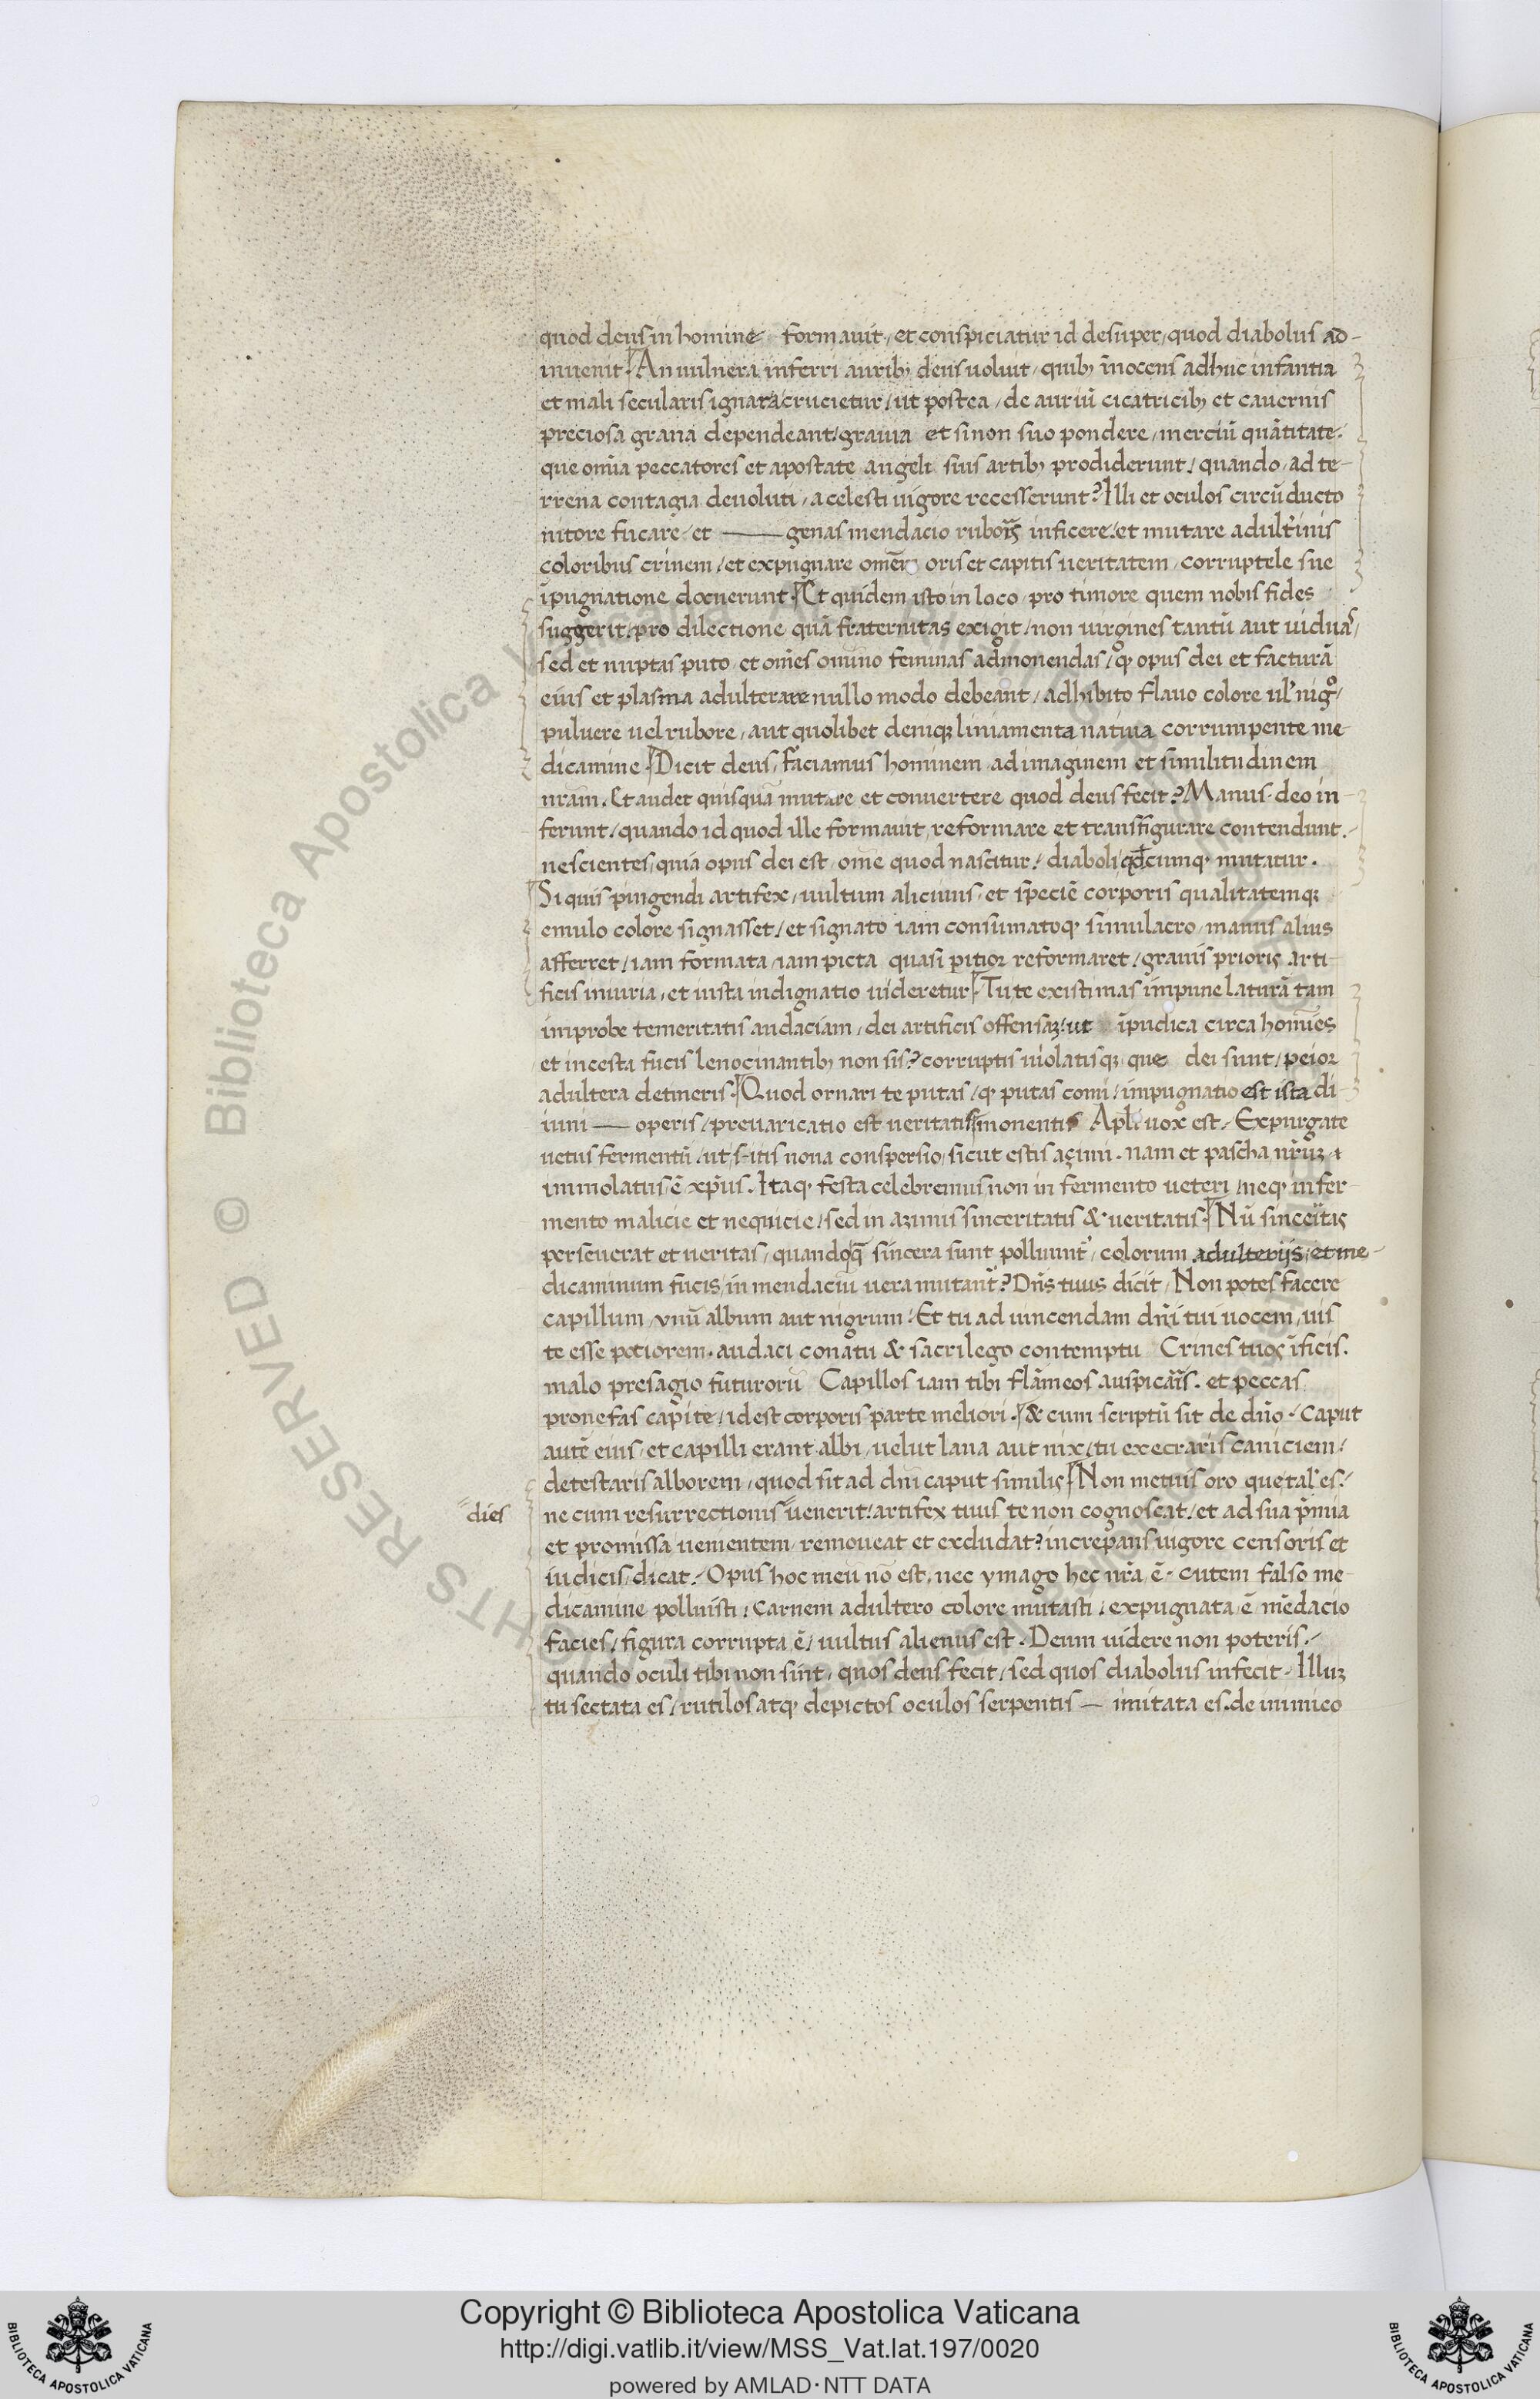 quod deus in homine formauit, et conspiciatur id desuper, quod diabolus ad-
inuenit. An uulnera inferri aurib; deus uoluit, quib; īnocens adhuc infantia
et mali secularis ignara crucietur, ut postea, de auriū cicatricib; et cauernis
preciosa grana dependeant, grauia et si non suo pondere, merciū quātitate.
que om̄ia peccatores et apostate angeli suis artib; prodiderunt, quando, ad te-
rrena contagia deuoluti, a celesti uigore recesserunt? Illi et oculos circūducto
nitore fucare, et — genas mendacio ruborꝭ inficere, et mutare adult'inis
coloribus crinem, et expugnare omēm oris et capitis ueritatem, corruptele sue
īpugnatione docuerunt. Et quidem isto in loco, pro timore quem nobis fides
suggerit, pro dilectione quā fraternitas exigit, non uirgines tantū aut uiduas,
sed et nuptas puto, et om̄es omīno feminas admonendas, qꝫ opus dei et facturā
eius et plasma adulterare nullo modo debeant, adhibito flauo colore ul' nigᵒ,
puluere uel rubore, aut quolibet deniqꝫ liniamenta natiua corrumpente me-
dicamine. Dicit deus, faciamus hominem ad imaginem et similitudinem
nr̄am. Et audet quisquā mutare et conuertere quod deus fecit? Manus deo in-
ferunt, quando id quod ille formauit, reformare et transfigurare contendunt.
nescientes, quia opus dei est, om̄e quod nascitur, diaboli qđcumqꝫ mutatur.
Si quis pingendi artifex, uultum alicuius, et speciē corporis qualitatemqꝫ
emulo colore signasset, et signato iam consumatoqꝫ simulacro, manus alius
afferret, iam formata, iam picta quasi pitior reformaret, grauis prioris arti-
ficis iniuria, et iusta indignatio uideretur. Tu te existimas impune laturā tam
improbe temeritatis audaciam, dei artificis offensaꝫ, ut īpudica circa homīes
et incesta fucis lenocinantib; non sis? corruptis uiolatisqꝫ que dei sunt, peior
adultera detineris. Quod ornari te putas, qꝫ putas comi, impugnatio est ista di
iuni — operis, preuaricatio est ueritatis. monentis Apl̄i uox est. Expurgate
uetus fermentū, ut sitis noua conspersio, sicut estis açimi. nam et pascha nr̄uꝫ
immolatus ē xp̄us. Itaqꝫ festa celebremus non in fermento ueteri, neqꝫ in fer-
mento malicie et nequicie, sed in azimis sinceritatis & ueritatis. Nū sinceitas
perseuerat et ueritas, quando q̄ sincera sunt polluunt', colorum adulterijs, et me-
dicaminum fucis, in mendaciū uera mutant'? Dn̄s tuus dicit, Non potes facere
capillum, vnū album aut nigrum. Et tu ad uincendam dn̄i tui uocem, uis
te esse potiorem. audaci conatu & sacrilego contemptu Crines tuos īficis.
malo presagio futurorū Capillos iam tibi flāmeos auspicar̄s. et peccas
pro nefas capite, id est corporis parte meliori. & cum scriptū sit de dn̄o. Caput
autē eius, et capilli erant albi, uelut lana aut nix, tu execraris caniciem,
detestaris alborem, quod sit ad dn̄i caput similis. Non metuis oro que tal' es,
ne cum resurrectionis uenerit, artifex tuus te non cognoscat, et ad sua p̄mia
dies
et promissa uenientem, remoueat et excludat? increpans uigore censoris et
iudicis, dicat. Opus hoc meū nō est, nec ymago hec nr̄a ē. cutem falso me-
dicamine polluisti, Carnem adultero colore mutasti, expugnata ē mēdacio
facies, figura corrupta ē, uultus alienus est. Deum uidere non poteris.
quando oculi tibi non sint, quos deus fecit, sed quos diabolus infecit. Illuꝫ
tu sectata es, rutilos atqꝫ depictos oculos serpentis — imitata es. de inimico
RIGHTS RESERVED © Biblioteca Apostolica Vaticana
Copyright © Biblioteca Apostolica Vaticana
http://digi.vatlib.it/view/MSS_Vat.lat.197/0020
powered by AMLAD·NTT DATA
BIBLIOTECA APOSTOLICA VATICANA
BIBLIOTECA APOSTOLICA VATICANA